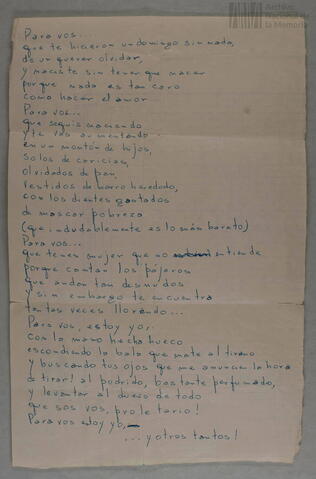 Archivo
Nacional de
la Memoria
Para vos...
que te hicieron un domingo sin nada,
de un querer olvidar,
y naciste sin tener que nacer
porque nada es tan caro
como hacer el amor
Para vos...
que seguis naciendo
y te vas aumentando
en un montón de hijos,
solos de caricias,
olvidados de pan,
vestidos de barro heredado,
con los dientes gastados
de mascar pobreza
(que indudablemente es lo más barato)
Para vos...
que tenes mujer que no entiende
porque cantan los pájaros
que andan tan desnudos
y sin embargo te encuentra
tantas veces llorando...
Para vos, estoy yo.
con la mano hecha hueco
escondiendo la bala que mate al tirano
y buscando tus ojos que me anuncien la hora
de tirar! al podrido, bastante perfumado,
y levantar al dueño de todo
que sos vos, proletario!
Para vos estoy yo,
...y otros tantos!